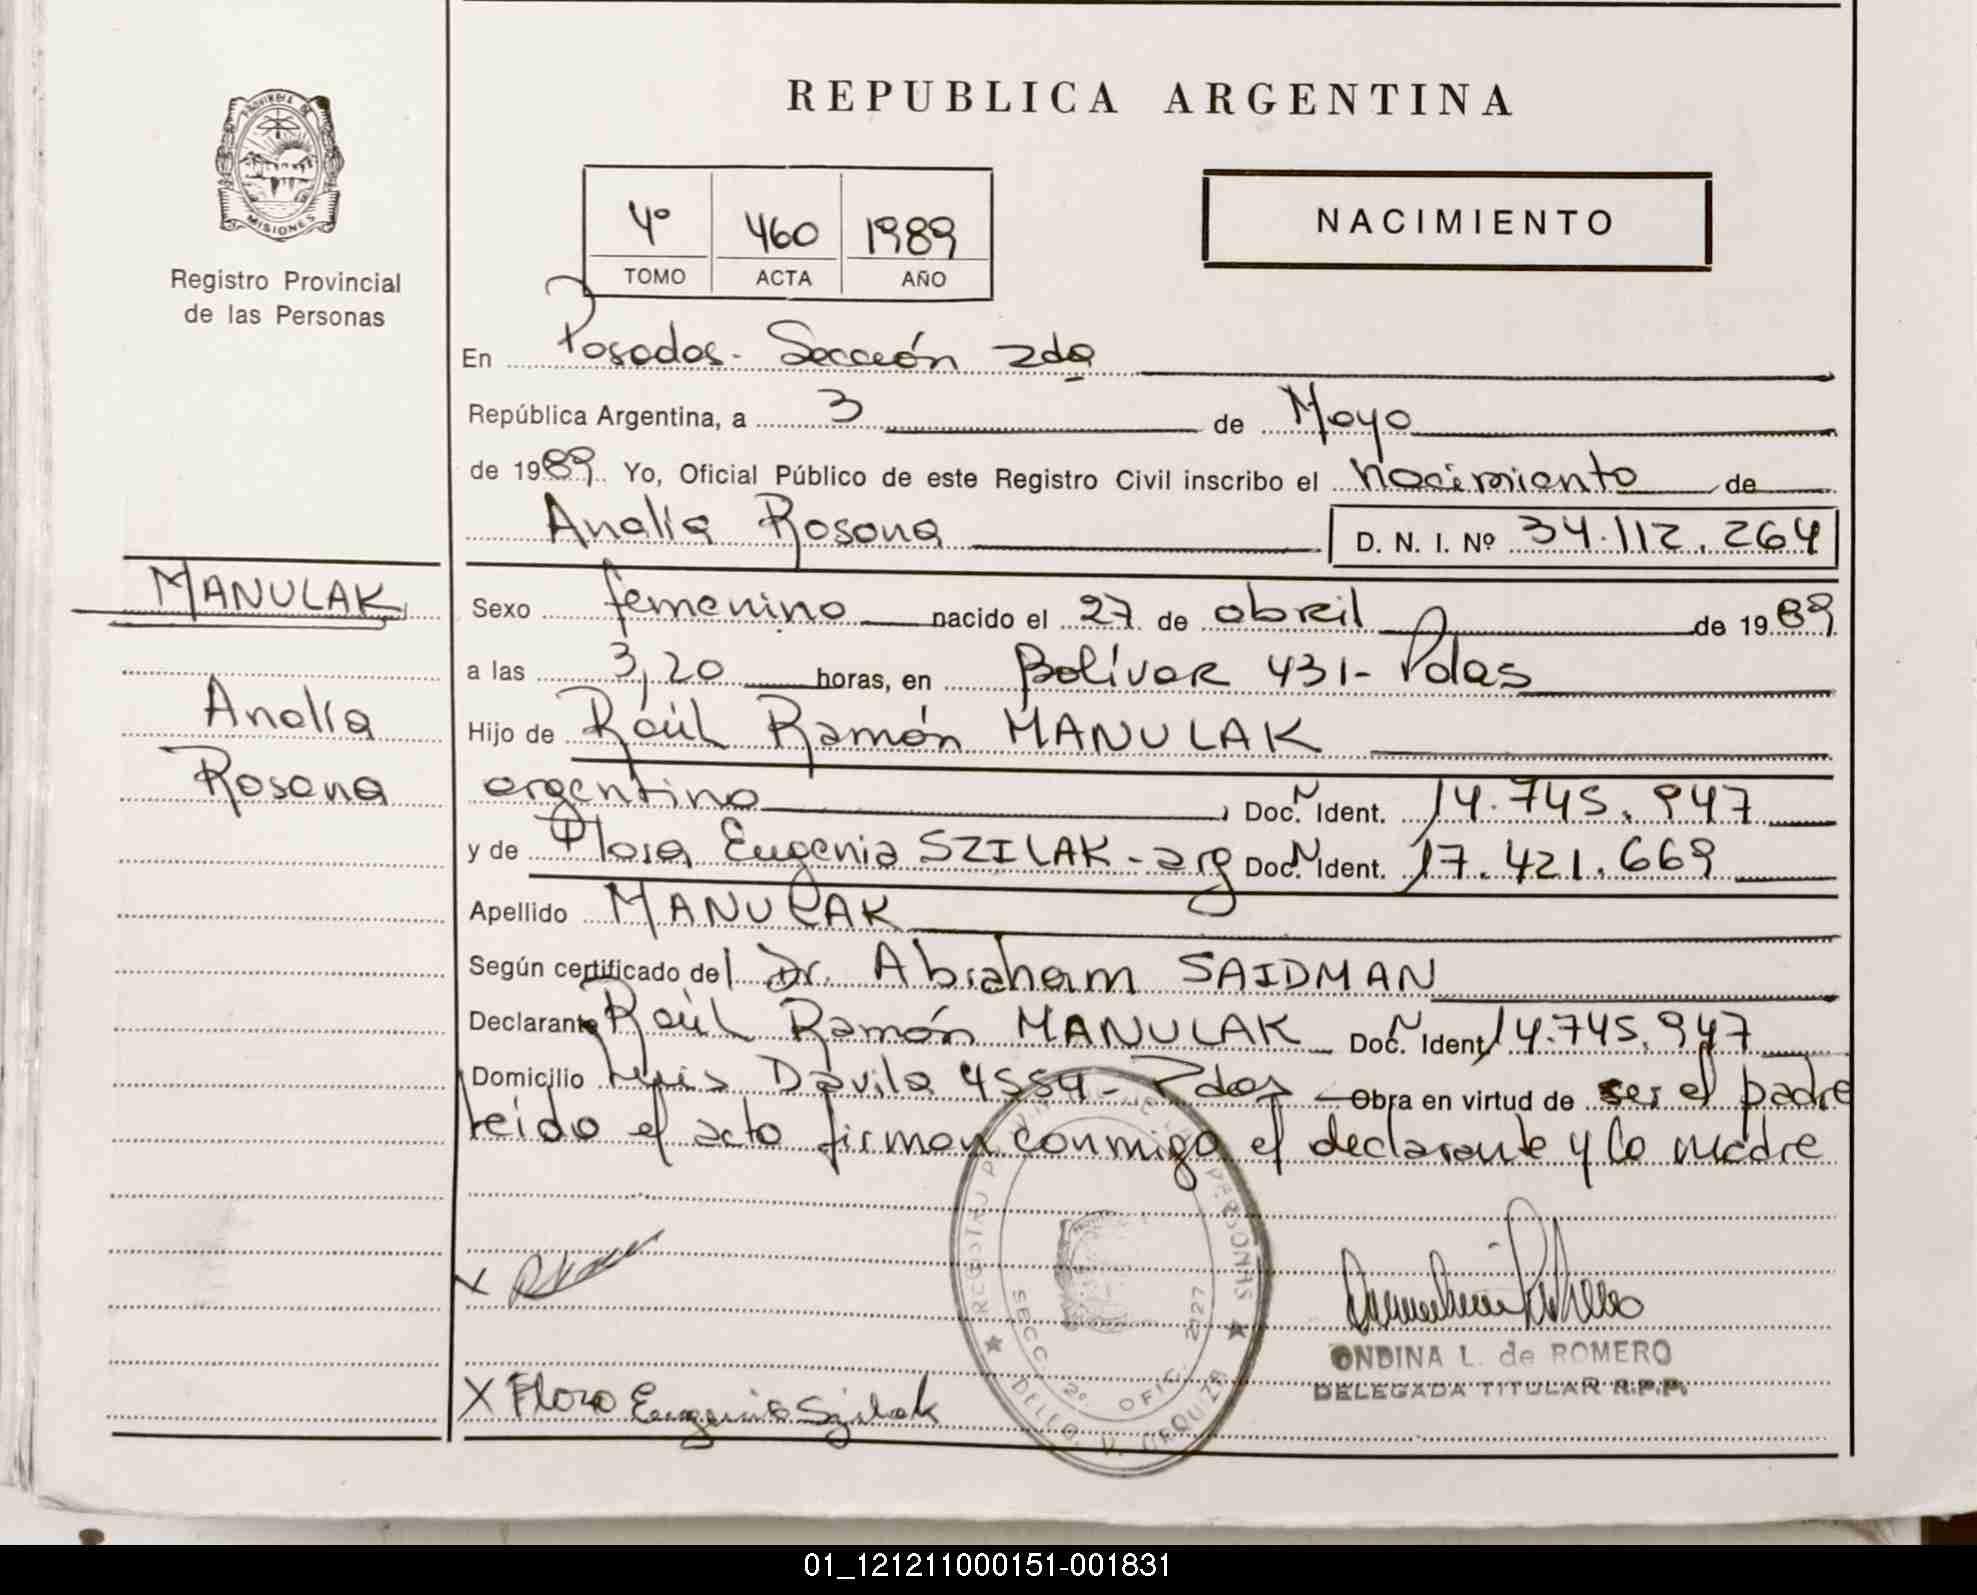 REPUBLICA ARGENTINA
PROVINCIA DE
MISIONES
Registro Provincial
de las Personas
4º 460 1989
TOMO ACTA AÑO
NACIMIENTO
En Posadas - Sección 2da
República Argentina, a 3 de Mayo
de 1989 Yo, Oficial Público de este Registro Civil inscribo el nacimiento de
Analía Rosana D. N. I. Nº 34.112.264
MANULAK
Analía
Rosana
Sexo femenino nacido el 27 de abril de 1989
a las 3,20 horas, en Bolívar 431 - Pdas
Hijo de Raúl Ramón MANULAK
argentino, Doc. N Ident. 14.745.947
y de Flora Eugenia SZILAK - arg Doc. N Ident. 17.421.669
Apellido MANULAK
Según certificado del Dr. Abraham SAIDMAN
Declarante Raúl Ramón MANULAK Doc. N Ident. 14.745.947
Domicilio Luis Davila 4554 - Pdas Obra en virtud de ser el padre
leido el acto firman conmigo el declarante y la madre
X
ONDINA L. de ROMERO
DELEGADA TITULAR R.P.P.
X Flora Eugenia Szilak
PERSONAS
SECC. 2º OFIC. 2127
DELEG. V. URQUIZA
01_121211000151-001831